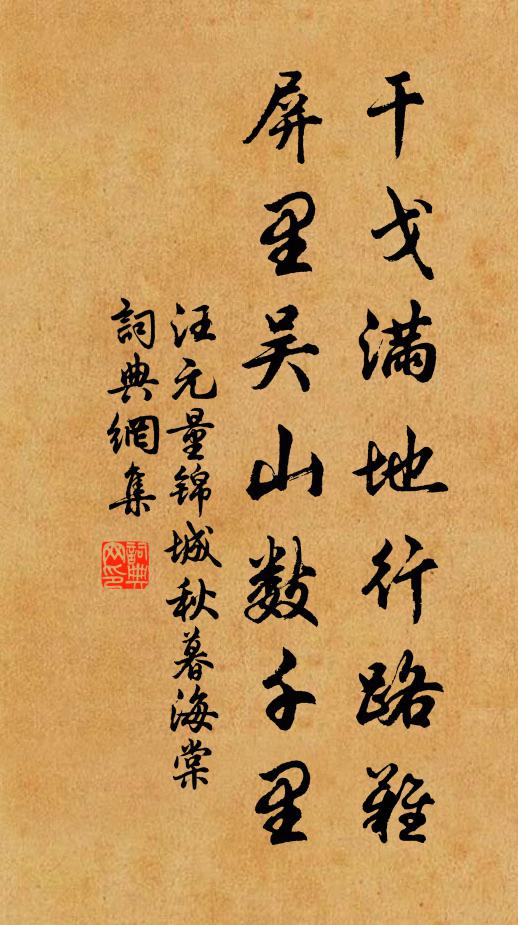 干戈满地行路难
屏里吴山数千里
汪元量锦城秋暮海棠
詞典網集
詞典网印